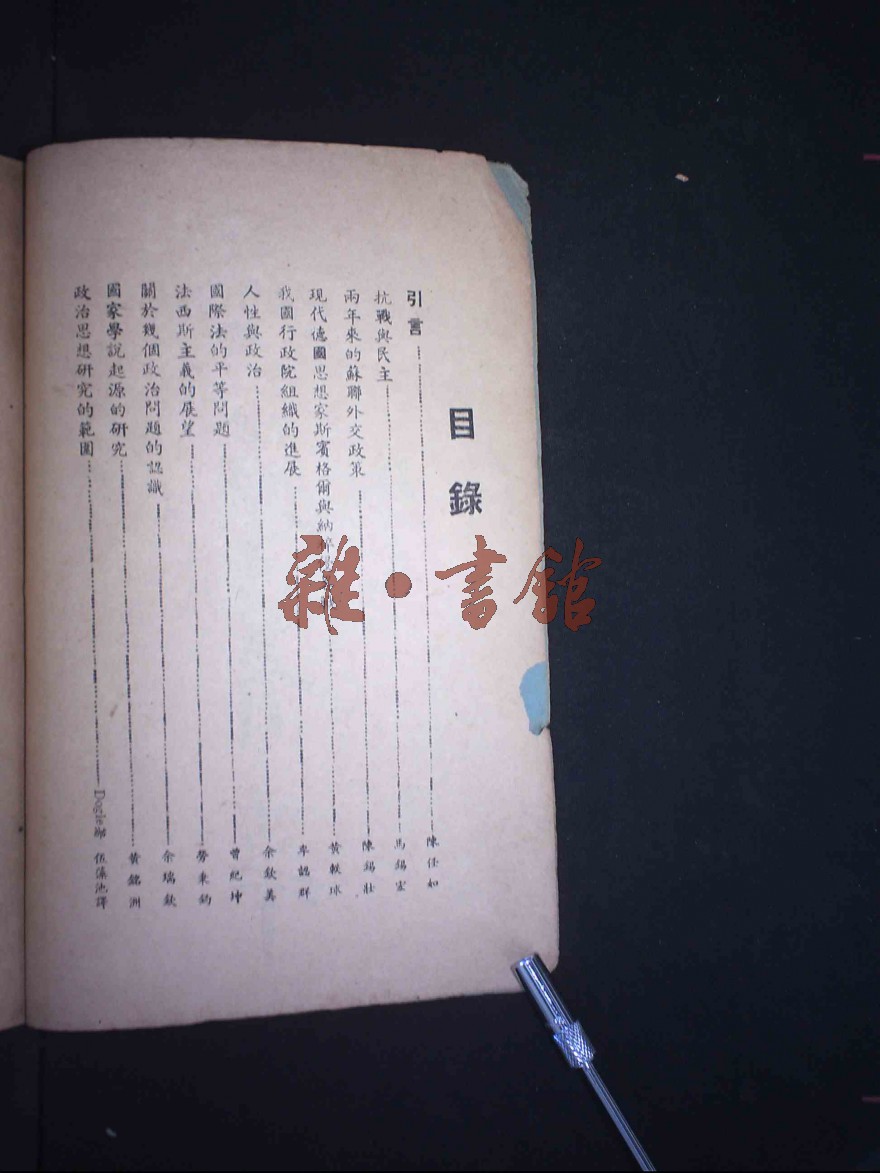 目錄
引言 陳任如
抗戰與民主 馬錫宏
兩年來的蘇聯外交政策 陳錫壯
現代德國思想家斯賓格爾與納粹 黃軼球
我國行政院組織的進展 群
人性與政治 余欽美
國際法的平等問題 曾紀坤
法西斯主義的展望 勞秉鈞
關於幾個政治問題的認識 余瑞欽
國家學說起源的研究 黃銘洲
政治思想研究的範圍 Dogle 伍藻池譯
雜·書館